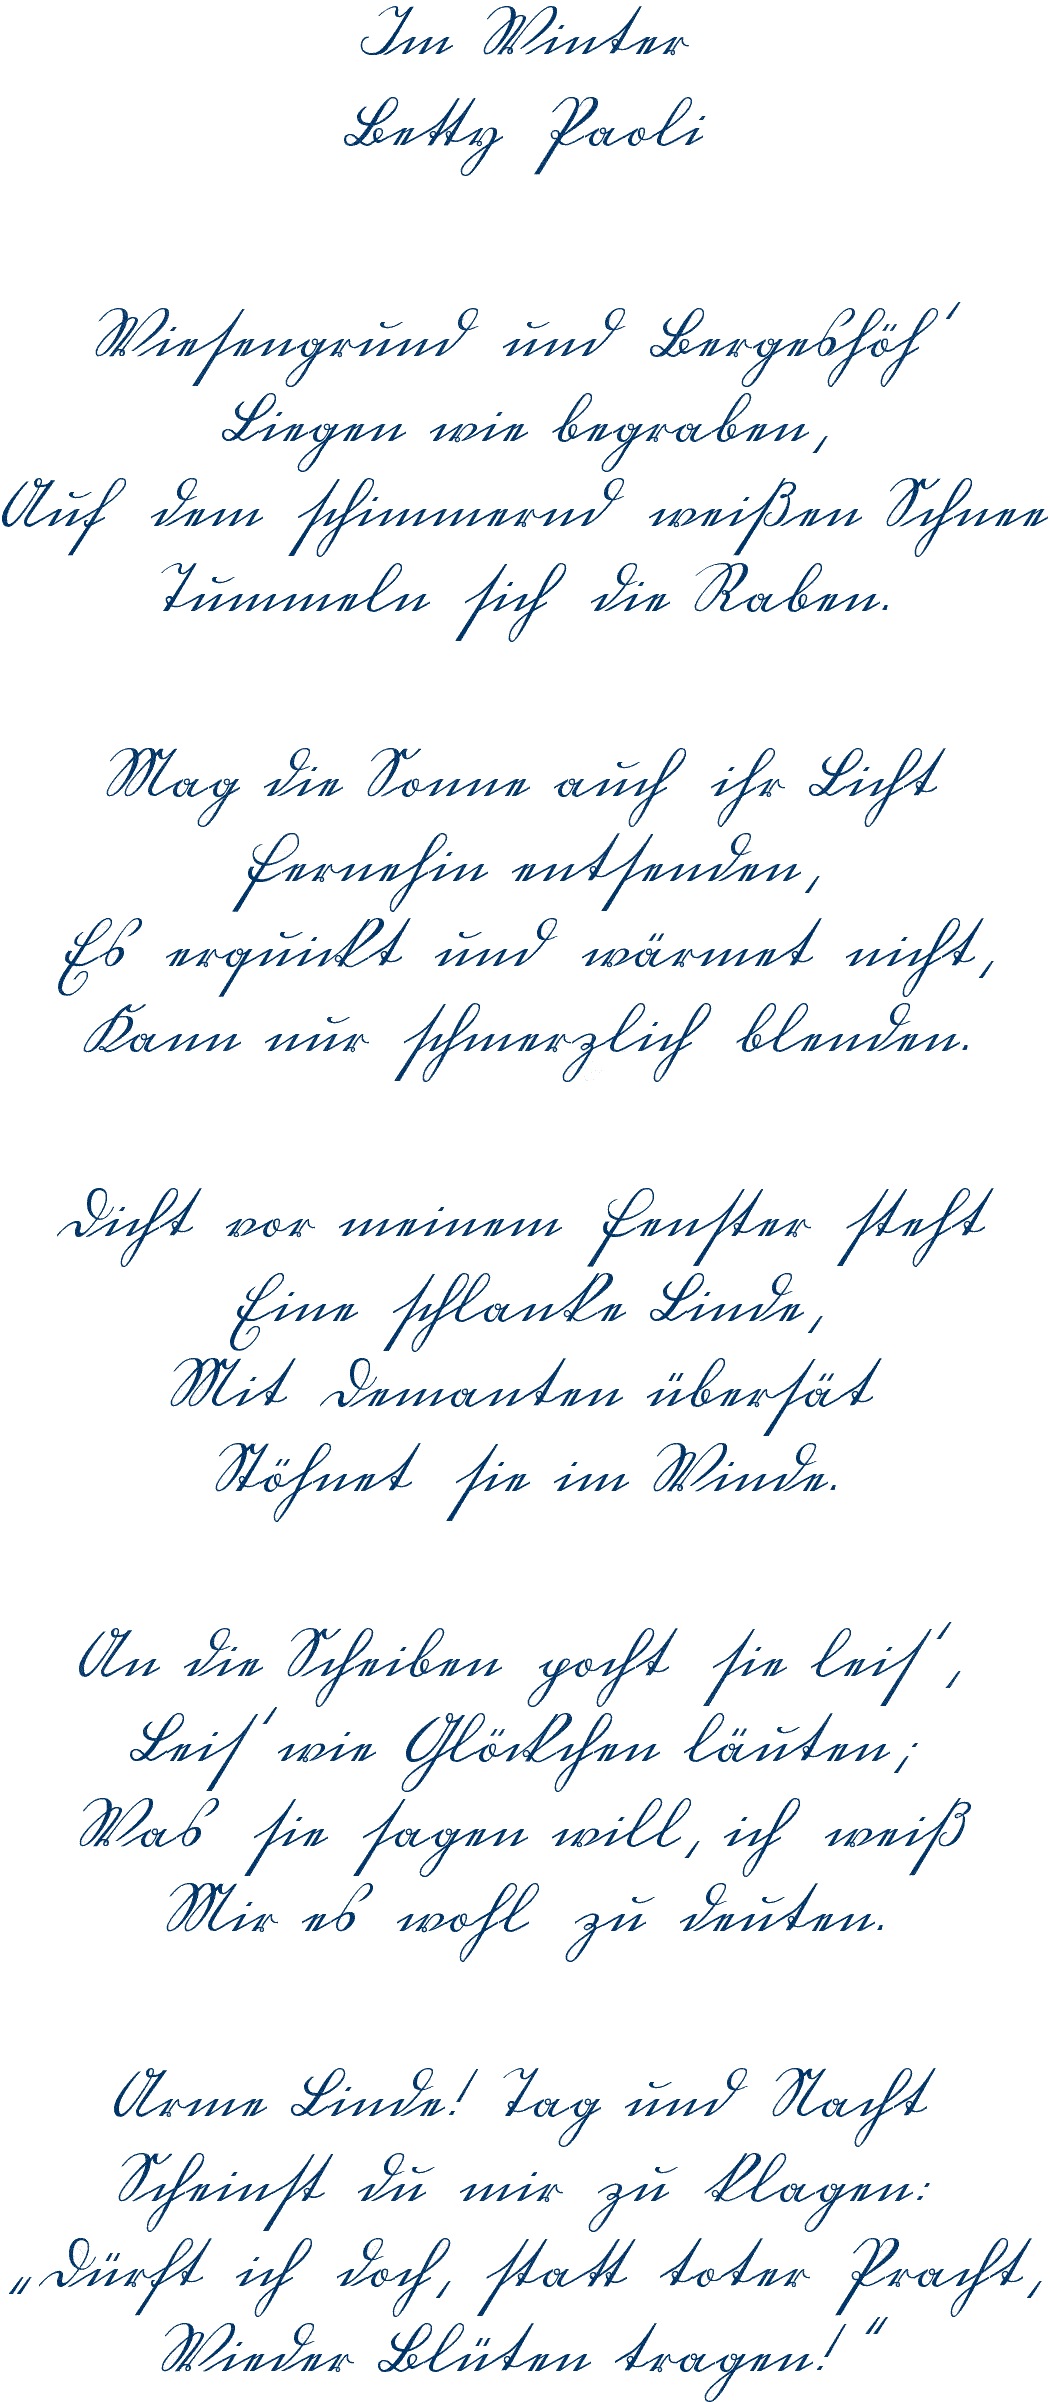 Im Winter
Betty Paoli
Wiesengrund und Bergeshöh'
Liegen wie begraben,
Auf dem schimmernd weißen Schnee
Tummeln sich die Raben.
Mag die Sonne auch ihr Licht
Fernehin entsenden,
Es erquickt und wärmet nicht,
Kann nur schmerzlich blenden.
Dicht vor meinem Fenster steht
Eine schlanke Linde,
Mit Demanten übersät
Stöhnet sie im Winde.
An die Scheiben pocht sie leis',
Leis' wie Glöckchen läuten;
Was sie sagen will, ich weiß
Mir es wohl zu deuten.
Arme Linde! Tag und Nacht
Scheinst du mir zu klagen:
„Dürft ich doch, statt toter Pracht,
Wieder Blüten tragen!“